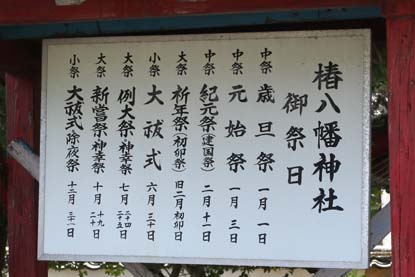 椿八幡神社
御祭日
中祭 歳旦祭 一月一日
中祭 元始祭 一月三日
中祭 紀元祭(建国祭) 二月十一日
大祭 祈年祭(初卯祭) 旧二月初卯日
小祭 大祓式 六月三十日
大祭 例大祭・神幸祭 七月二十四二十五日
大祭 新嘗祭・神幸祭 十月十九二十日
小祭 大祓式・除夜祭 十二月三十一日